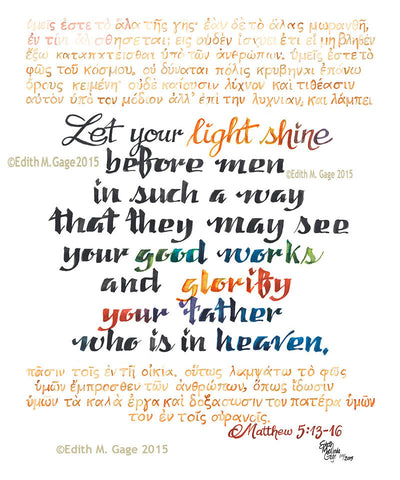 ὑμεῖς ἐστε τὸ ἅλα τῆς γῆς· ἐὰν δὲ τὸ ἅλας μωρανθῇ,
ἐν τίνι ἁλισθησεται; εἰς οὐδὲν ἰσχύει ἔτι εἰ μὴ βληθὲν
ἔξω καταπατεῖσθαι ὑπὸ τῶν ἀνθρώπων. ὑμεῖς ἐστε τὸ
φῶς τοῦ κόσμου. οὐ δύναται πόλις κρυβῆναι ἐπάνω
ὄρους κειμένη· οὐδὲ καίουσιν λύχνον καὶ τιθέασιν
αὐτὸν ὑπὸ τὸν μόδιον ἀλλ' ἐπὶ τὴν λυχνίαν, καὶ λάμπει
Let your light shine
©Edith M. Gage 2015
before men
©Edith M. Gage 2015
in such a way
that they may see
your good works
and glorify
your Father
who is in heaven.
πᾶσιν τοῖς ἐν τῇ οἰκίᾳ. οὕτως λαμψάτω τὸ φῶς
ὑμῶν ἔμπροσθεν τῶν ἀνθρώπων, ὅπως ἴδωσιν
ὑμῶν τὰ καλὰ ἔργα καὶ δοξάσωσιν τὸν πατέρα ὑμῶν
τὸν ἐν τοῖς οὐρανοῖς.
Matthew 5:13-16
©Edith M. Gage 2015